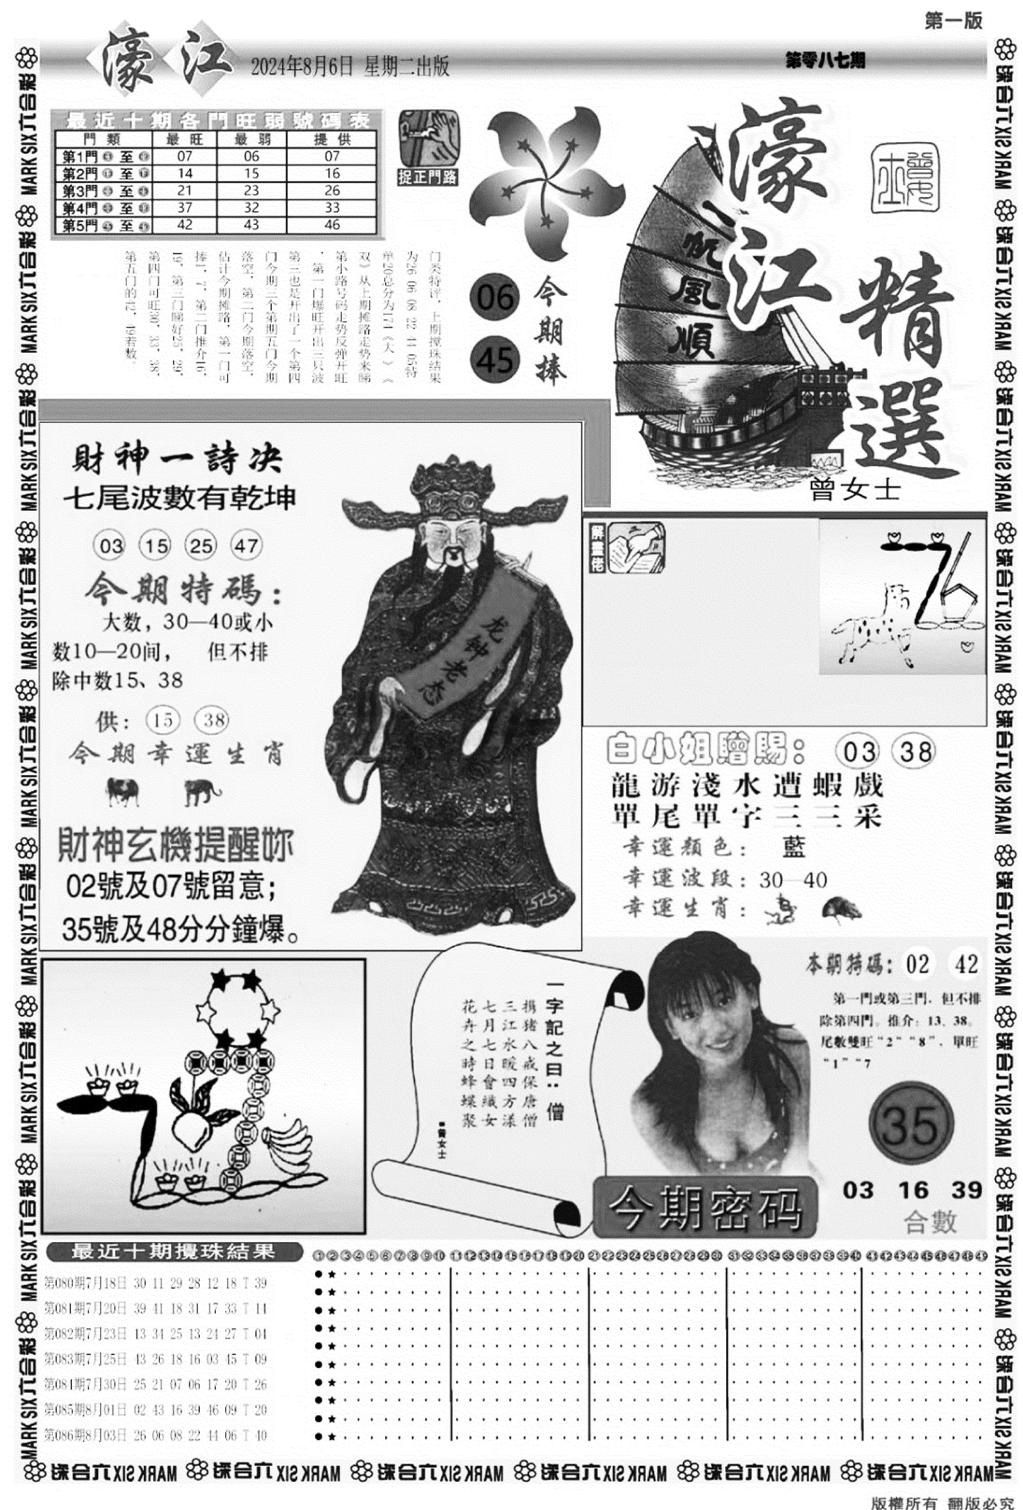 第一版
濠江 2024年8月6日 星期二出版
第零八七期
最近十期各門旺弱號碼表
門類 最旺 最弱 提供
第1門 至 07 06 07
第2門 至 14 15 16
第3門 至 21 23 26
第4門 至 37 32 33
第5門 至 42 43 46
捉正門路
门类特评，上期搅珠结果
为26 06 08 22 44 05特
单20总分为171（大）（
双）从上期摊路走势来睇
第小路号码走势反弹开旺
，第一门爆旺开出三只波
第三也是开出了一个第四
门今期三个第期五门今期
落空，第二门今期落空，
估计今期摊路，第一门可
捧1、7，第二门推介16、
19，第三门睇好25、29，
第四门可旺30、33、38，
第五门的42、49若数。
06
45
今期捧
濠江精選
一帆風順
曾女士
財神一詩决
七尾波數有乾坤
03 15 25 47
今期特碼：
大数，30—40或小
数10—20间， 但不排
除中数15、38
供：15 38
今期幸運生肖
財神玄機提醒妳
02號及07號留意；
35號及48分分鐘爆。
龙钟老态
解畫佬
白小姐贈賜：03 38
龍游淺水遭蝦戲
單尾單字三三采
幸運顏色：藍
幸運波段：30—40
幸運生肖：
一字記之曰：僧
携猪八戒保唐僧
三江水暖四方漾
七月七日會織女
花卉之時蜂蝶聚
■曾女士
本期特碼：02 42
第一門或第三門，但不排
除第四門。推介：13、38。
尾數雙旺“2”“8”，單旺
“1”“7
35
今期密码
03 16 39
合數
最近十期攪珠結果
①②③④⑤⑥⑦⑧⑨⑩⑪⑫⑬⑭⑮⑯⑰⑱⑲⑳㉑㉒㉓㉔㉕㉖㉗㉘㉙㉚㉛㉜㉝㉞㉟㊱㊲㊳㊴㊵㊶㊷㊸㊹㊺㊻㊼㊽㊾
第080期7月18日 30 11 29 28 12 18 T 39
第081期7月20日 39 41 18 31 17 33 T 14
第082期7月23日 13 34 25 13 24 27 T 04
第083期7月25日 43 26 18 16 03 45 T 09
第084期7月30日 25 21 07 06 17 20 T 26
第085期8月01日 02 43 16 39 46 09 T 20
第086期8月03日 26 06 08 22 44 06 T 40
MARK SIX六合彩
版權所有 翻版必究